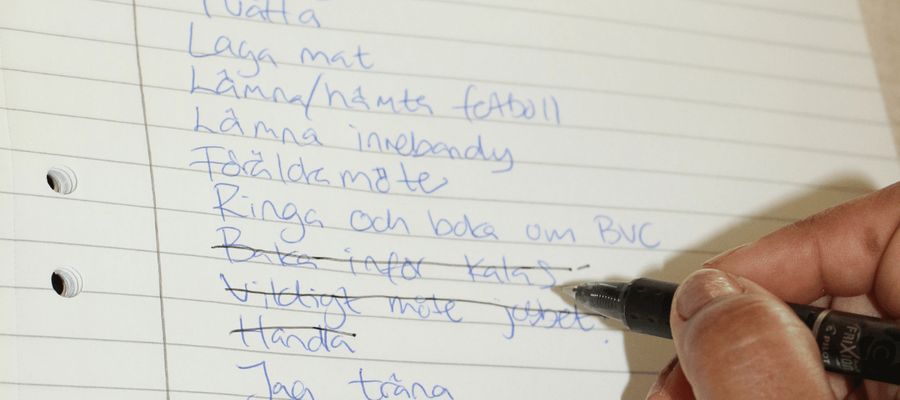 Tvätta
Laga mat
Lämna/hämta fotboll
Lämna innebandy
Föräldramöte
Ringa och boka om BVC
Baka inför kalas
Viktigt möte jobbet.
Handla
Jag träna
FRIXION
PILOT